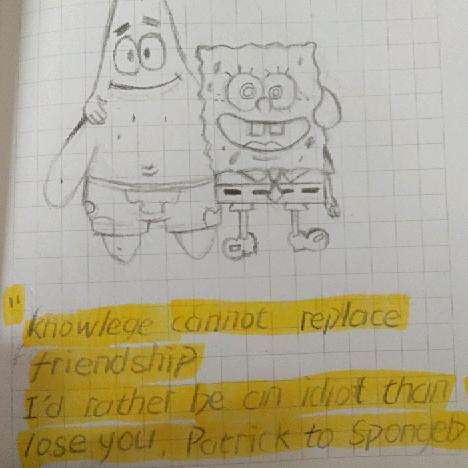 "
knowlege cannot replace
friendship
I'd rather be an idiot than
lose you. Patrick to Spongeb